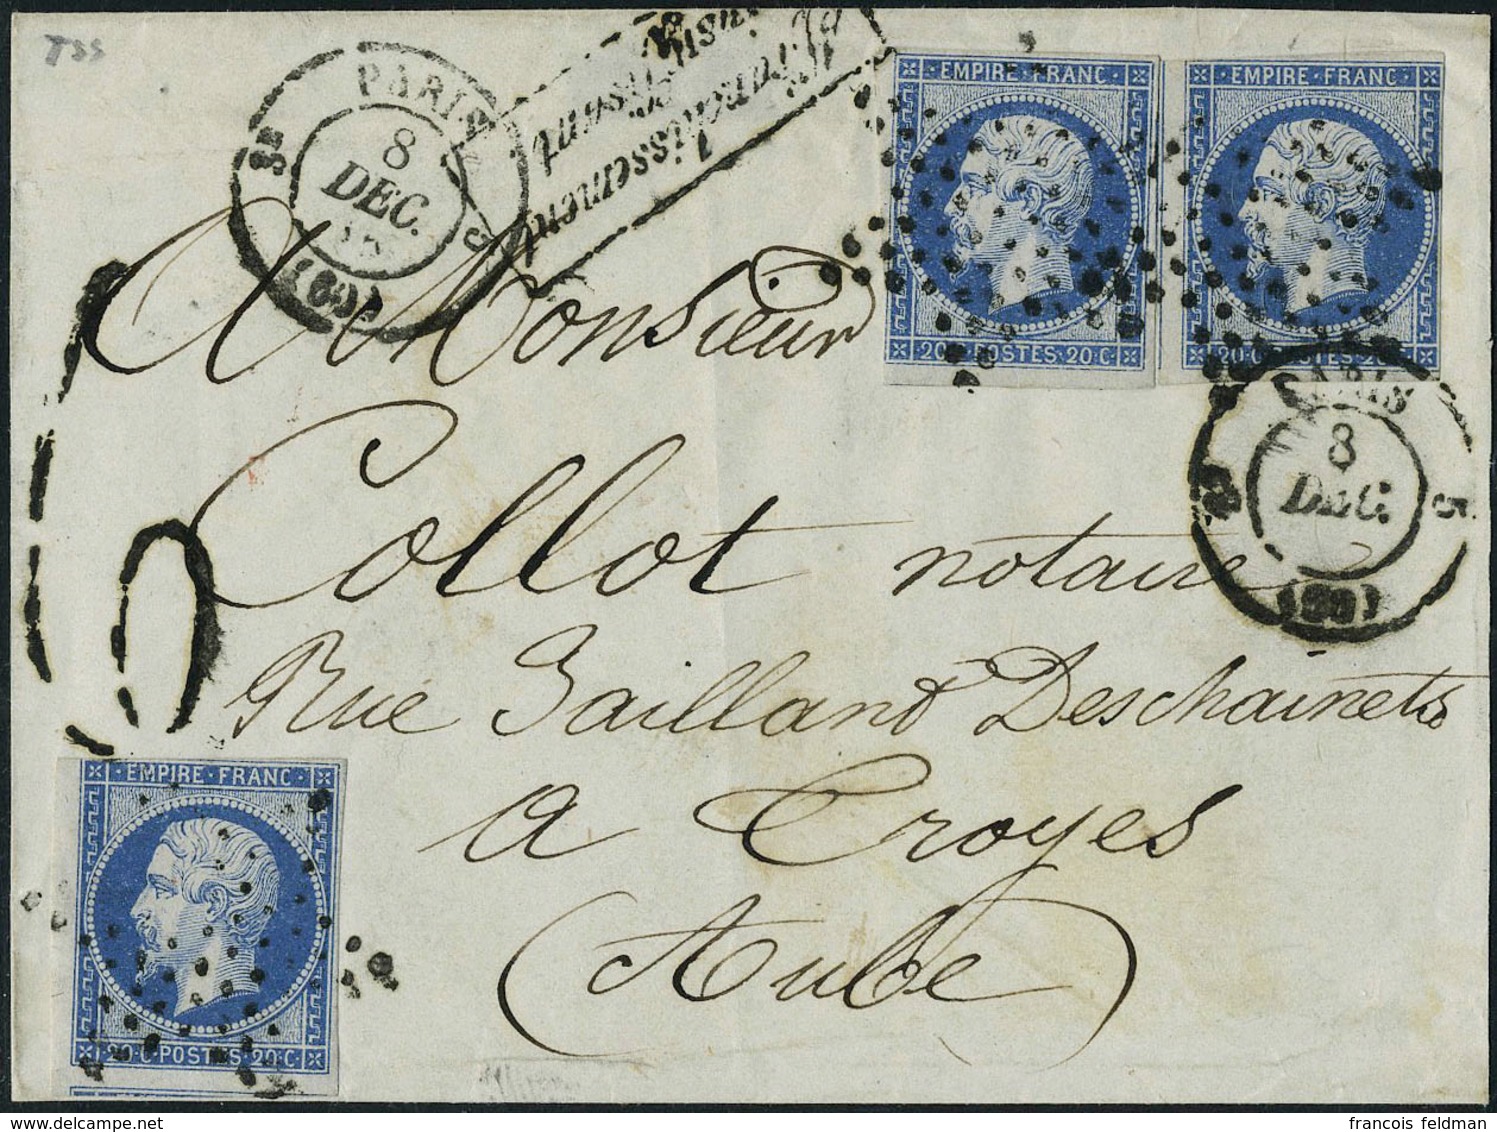 T35
PARIS
8
DEC.
(60)
Affranchissement
insuffisant
EMPIRE · FRANC
20 · C · POSTES · 20 · C
EMPIRE · FRANC
20 · C · POSTES · 20 · C
A Monsieur
PARIS
8
DEC.
(60)
Collot notaire
Rue Gaillard Deschainets
a Troyes
(Aube)
EMPIRE · FRANC
20 · C · POSTES · 20 · C
francois feldman